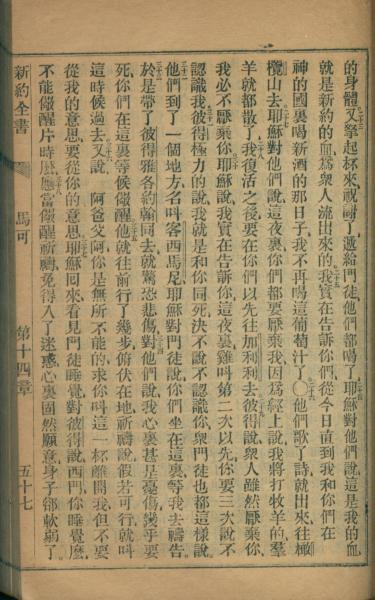 的身體又擎起杯來祝謝了遞給門徒他們都喝了耶穌對他們說這是我的血
就是新約的血爲衆人流出來的我實在告訴你們從今日直到我和你們在
神的國裏喝新酒的那日子我不再喝這葡萄汁了○他們歌了詩就出來往橄
欖山去耶穌對他們說這夜裏你們都要厭棄我因爲經上說我將打牧羊的羣
羊就都散了我復活之後要在你們以先往加利利去彼得說衆人雖然厭棄你
我必不厭棄你耶穌說我實在告訴你這夜裏雞叫第二次以先你要三次說不
認識我彼得極力的說我就是和你同死決不說不認識你衆門徒也都這樣說
他們到了一個地方名叫客西馬尼耶穌對門徒說你們坐在這裏等我去禱告
於是帶了彼得雅各約翰同去就驚恐悲傷對他們說我心裏甚是憂傷幾乎要
死你們在這裏等候儆醒他就往前行了幾步俯伏在地祈禱說假若可行就叫
這時候過去又說阿爸父阿你是無所不能的求你叫這一杯離開我但不要
從我的意思要從你的意思耶穌回來看見門徒睡覺對彼得說西門你睡覺麼
不能儆醒片時麼應當儆醒祈禱免得入了迷惑心裏固然願意身子卻軟弱了
新約全書 馬可 第十四章 五十七